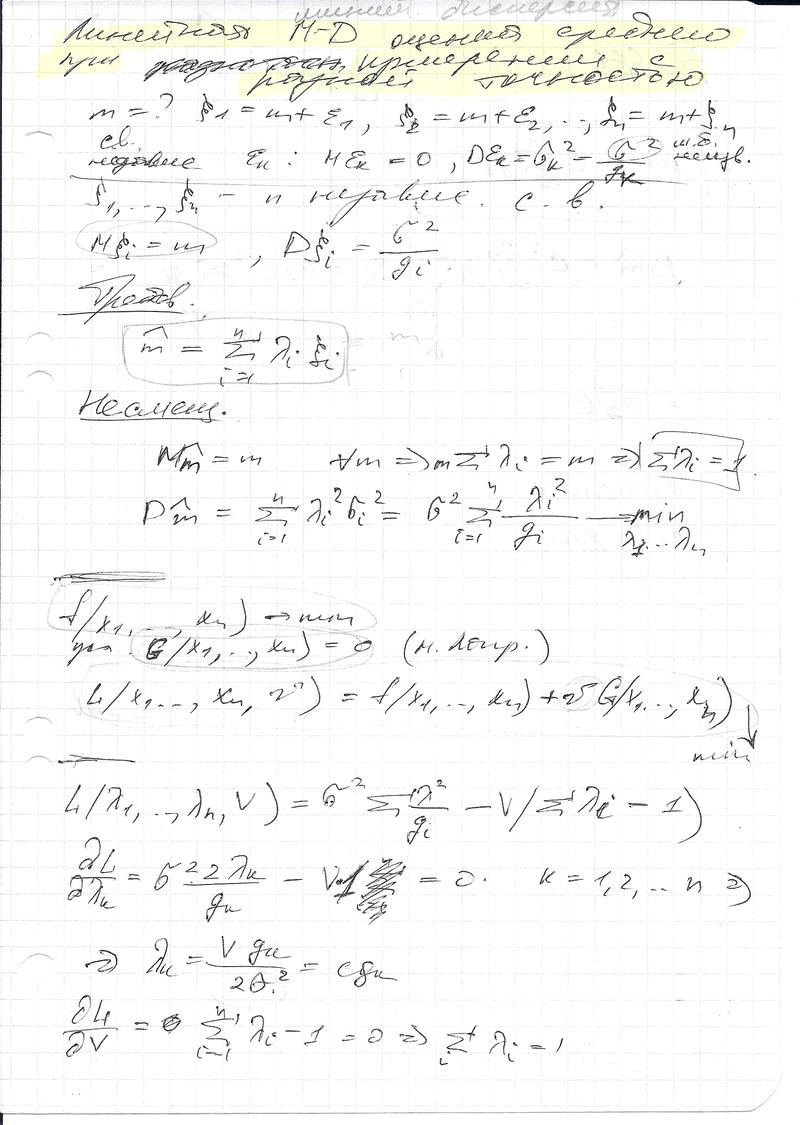 миним. дисперсия
Линейная М-D оценка среднего
при измерении с
разной точностью
m = ? ξ₁ = m + ε₁, ξ₂ = m + ε₂, .., ξₙ = m + ξₙ
св.
независ εₖ : Mεₖ = 0, Dεₖ = σₖ² = σ²/gₖ м.б. неизв.
ξ₁, ..., ξₙ - n независ. с. в.
Mξᵢ = m , Dξᵢ = σ²/gᵢ
m̂ = Σᵢ₌₁ⁿ λᵢ ξᵢ
Несмещ.
Mm̂ = m ∀m => m Σ λᵢ = m => Σλᵢ = 1.
Dm̂ = Σᵢ₌₁ⁿ λᵢ² σᵢ² = σ² Σᵢ₌₁ⁿ λᵢ²/gᵢ → min λ₁...λₙ
f(x₁, ..., xₙ) → min
усл. G(x₁, .., xₙ) = 0 (н. непр.)
L(x₁..., xₙ, v) = f(x₁, ..., xₙ) + v G(x₁..., xₙ)
min
L(λ₁, .., λₙ, V) = σ² Σ λ²/gᵢ - V(Σ λᵢ - 1)
∂L/∂λₖ = σ² 2λₖ/gₖ - V·1 = 0. k = 1, 2, .. n =>
=> λₖ = V gₖ/2σ² = cgₖ
∂L/∂V = Σᵢ₌₁ⁿ λᵢ - 1 = 0 => Σᵢ λᵢ = 1